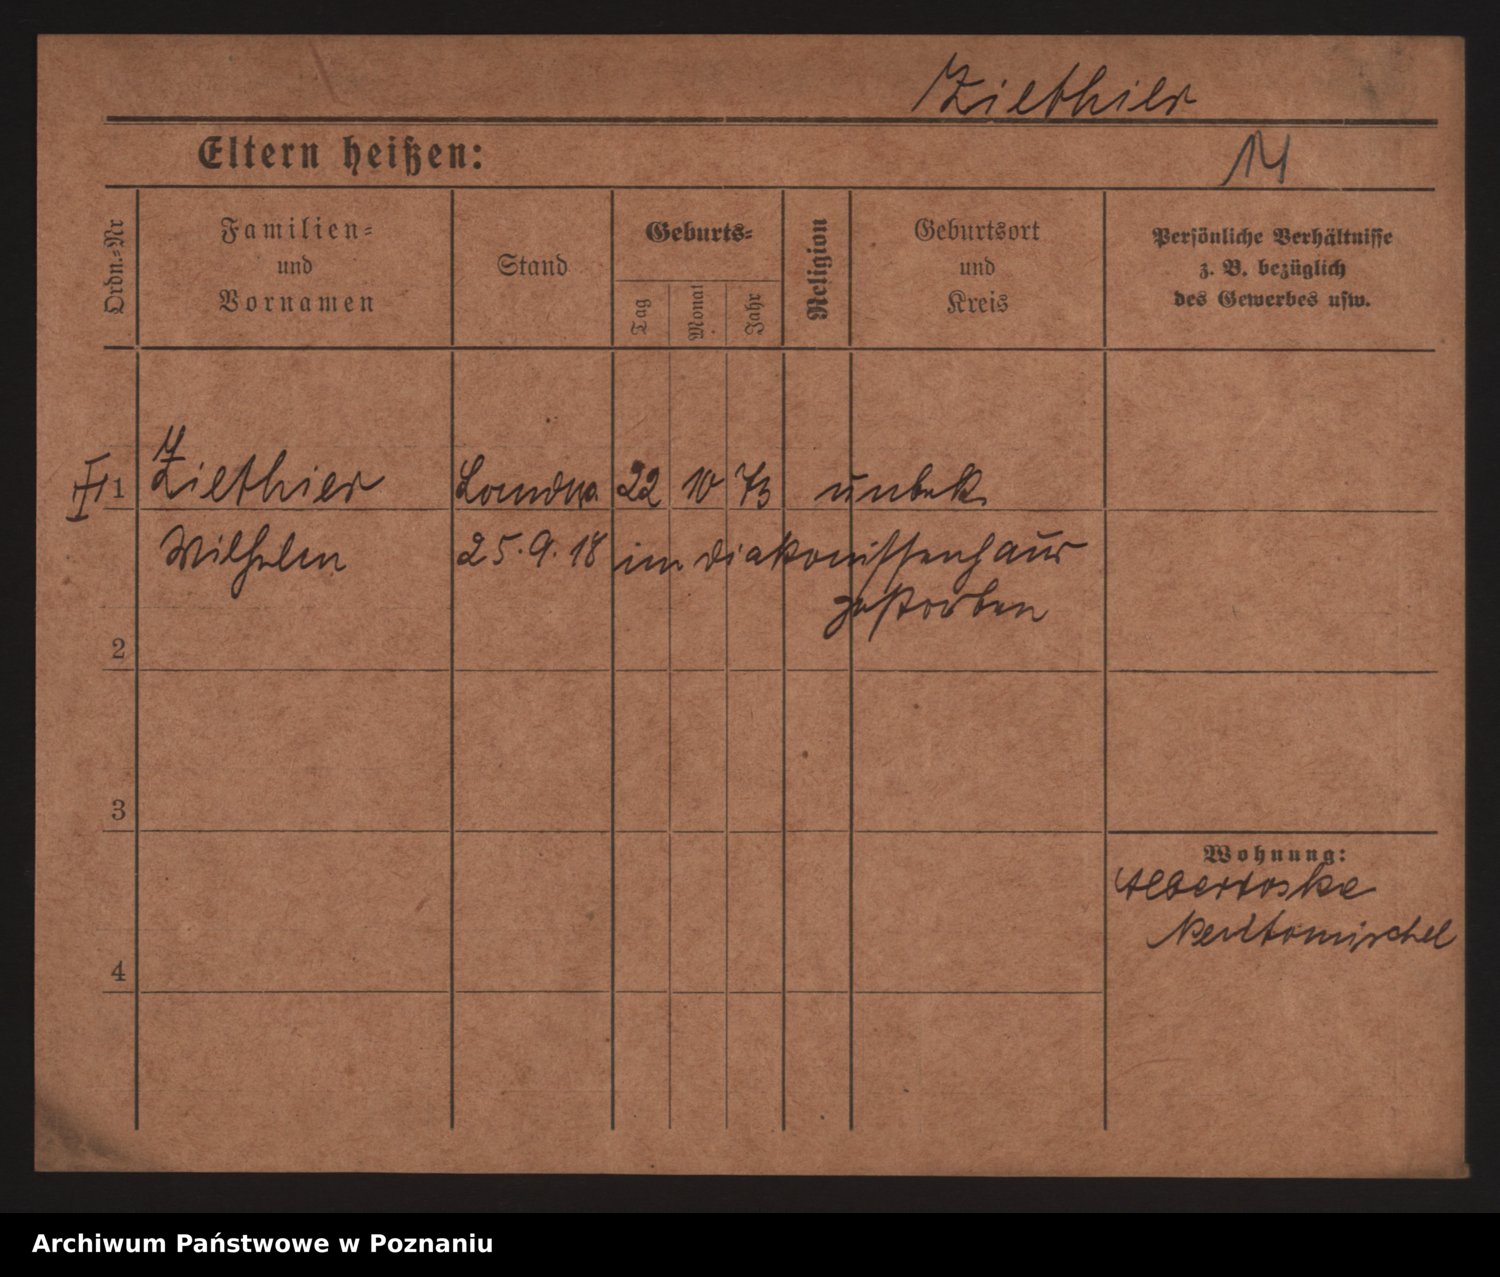 Ziethier
Eltern heißen:
14
Ordn.-Nr
Familien-
und
Vornamen
Stand
Geburts-
Tag
Monat
Jahr
Religion
Geburtsort
und
Kreis
Persönliche Verhältnisse
z. B. bezüglich
des Gewerbes usw.
II 1 Ziethier 22 10 73 unbek.
Wilhelm 25.9.18 im Diakonissenhaus
gestorben
2
3
4
Wohnung:
Albertoske
Neutomischel
Archiwum Państwowe w Poznaniu